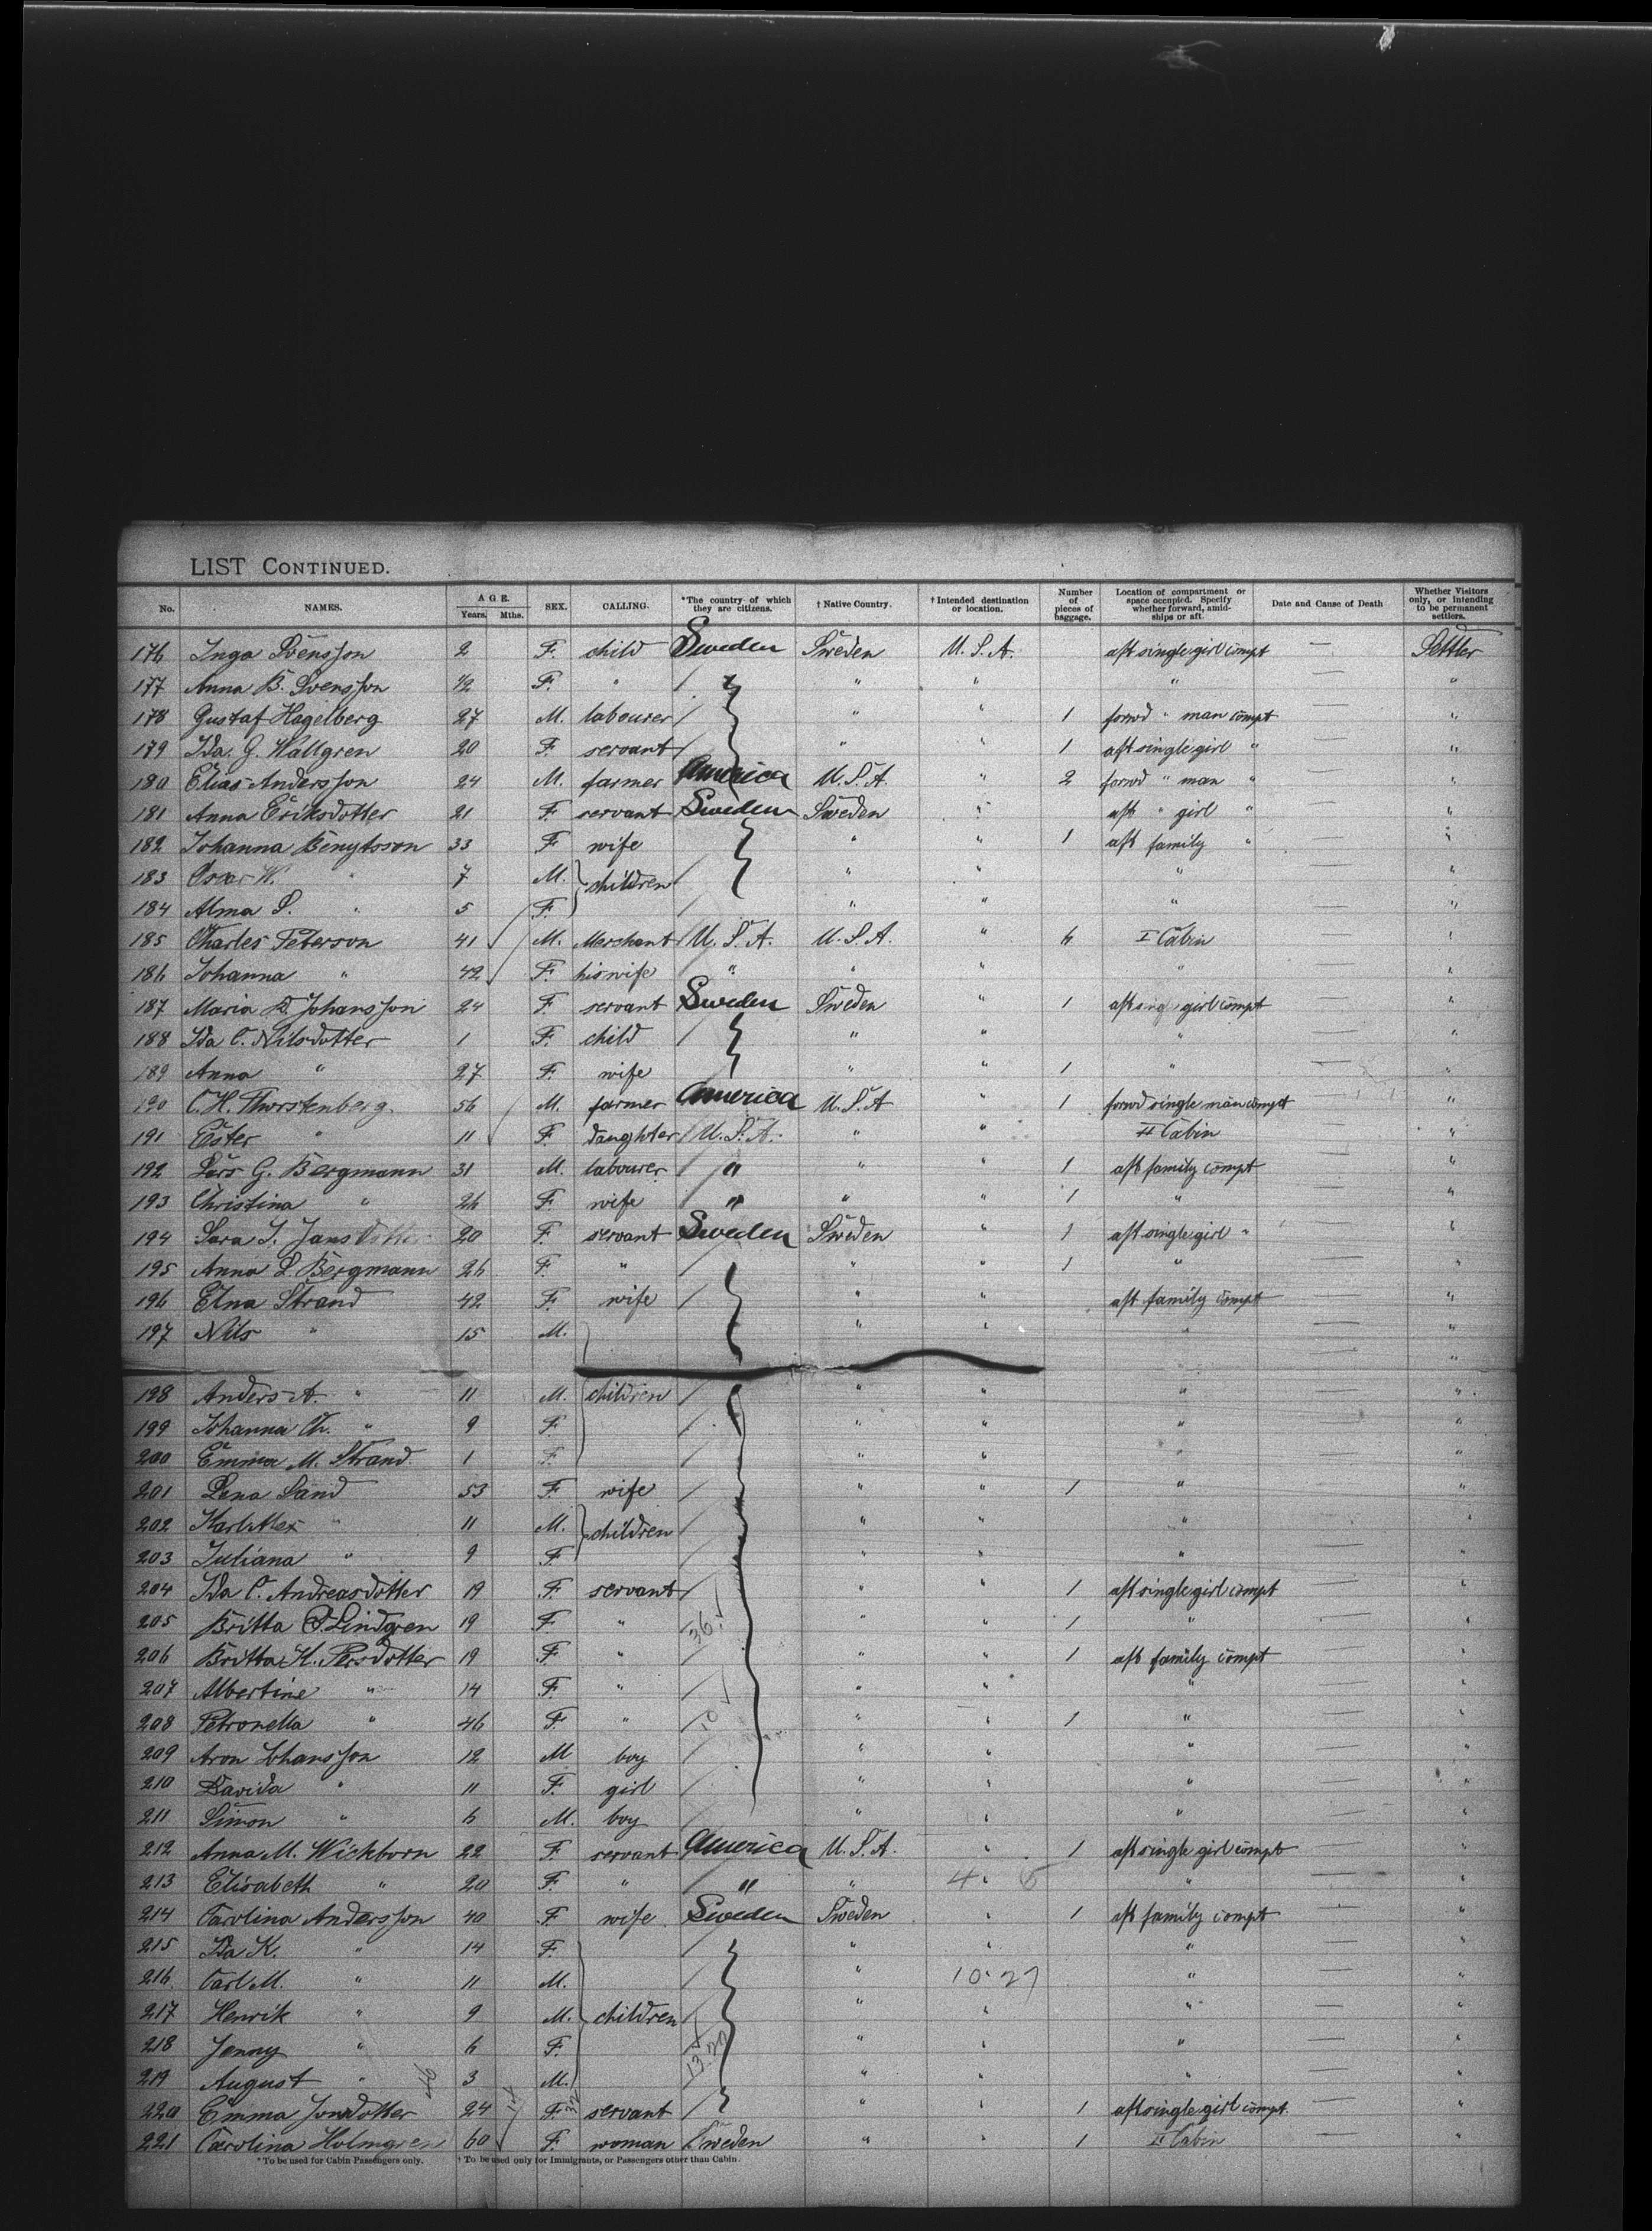 LIST CONTINUED.
No. NAMES. AGE. Years. Mths. SEX. CALLING. *The country of which they are citizens. † Native Country. † Intended destination or location. Number of pieces of baggage. Location of compartment or space occupied. Specify whether forward, amid-ships or aft. Date and Cause of Death Whether Visitors only, or intending to be permanent settlers.
176 Inga Svensson 2 F. child Sweden Sweden U.S.A. aft single girl compt — Settler
177 Anna B. Svensson 1/2 F. " / " " " — "
178 Gustaf Hagelberg 27 M. labourer / " " 1 forwd " man compt — "
179 Ida G. Wallgren 20 F. servant / " " 1 aft single girl " — "
180 Elias Andersson 24 M. farmer America U.S.A. " 2 forwd " man " — "
181 Anna Eriksdotter 21 F. servant Sweden Sweden " aft " girl " — "
182 Johanna Bengtsson 33 F. wife " " 1 aft family " — "
183 Oscar W. " 7 M. children / " " " — "
184 Alma S. " 5 F. / " " " — "
185 Charles Peterson 41 M. Merchant U.S.A. U.S.A. " 6 I Cabin — "
186 Johanna " 42 F. his wife " " " " — "
187 Maria D. Johansson 24 F. servant Sweden Sweden " 1 aft sing girl compt — "
188 Ida C. Nilsdotter 1 F. child / " " " — "
189 Anna " 27 F. wife " " 1 " — "
190 C. H. Thorstenberg 56 M. farmer America U.S.A " 1 forwd single man compt — "
191 Ester " 11 F. daughter U.S.A. " " II Cabin — "
192 Lars G. Bergmann 31 M. labourer / " " " 1 aft family compt — "
193 Christina " 26 F. wife / " " " 1 " — "
194 Sara J. Jansdotter 20 F. servant Sweden Sweden " 1 aft single girl " — "
195 Anna L. Bergmann 26 F. " / " " 1 " — "
196 Elna Strand 42 F. wife / " " aft family compt — "
197 Nils " 15 M. " " " — "
198 Anders A. " 11 M. children / " " " — "
199 Johanna Ch. " 9 F. / " " " — "
200 Emma M. Strand 1 F. / " " " — "
201 Lena Sand 53 F. wife / " " 1 " — "
202 Karl Alex " 11 M. children / " " " — "
203 Juliana " 9 F. / " " " — "
204 Ida C. Andreasdotter 19 F. servant / " " 1 aft single girl compt — "
205 Britta C. Lindgren 19 F. " 36 " " 1 " — "
206 Britta H. Persdotter 19 F. " / " " 1 aft family compt — "
207 Albertine " 14 F. " / " " " — "
208 Petronella " 46 F. " 10 " " 1 " — "
209 Aron Johansson 12 M boy / " " " — "
210 Davida " 11 F. girl / " " " — "
211 Simon " 6 M. boy / " " " — "
212 Anna M. Wickborn 22 F. servant America U.S.A. " 1 aft single girl compt — "
213 Elisabeth " 20 F. " / " " 4 " 5 " — "
214 Carolina Andersson 40 F. wife Sweden Sweden " 1 aft family compt — "
215 Ida K. " 14 F. / " " " — "
216 Carl M. " 11 M. / " 10 " 27 " — "
217 Henrik " 9 M. children / " " " — "
218 Jenny " 6 F. 13.22 " " " — "
219 August " 3 M. " " " — "
220 Emma Jonsdotter 24 F. servant / " " 1 aft single girl compt — "
221 Carolina Holmgren 60 F. woman Sweden " " 1 II Cabin — "
* To be used for Cabin Passengers only. † To be used only for Immigrants, or Passengers other than Cabin.